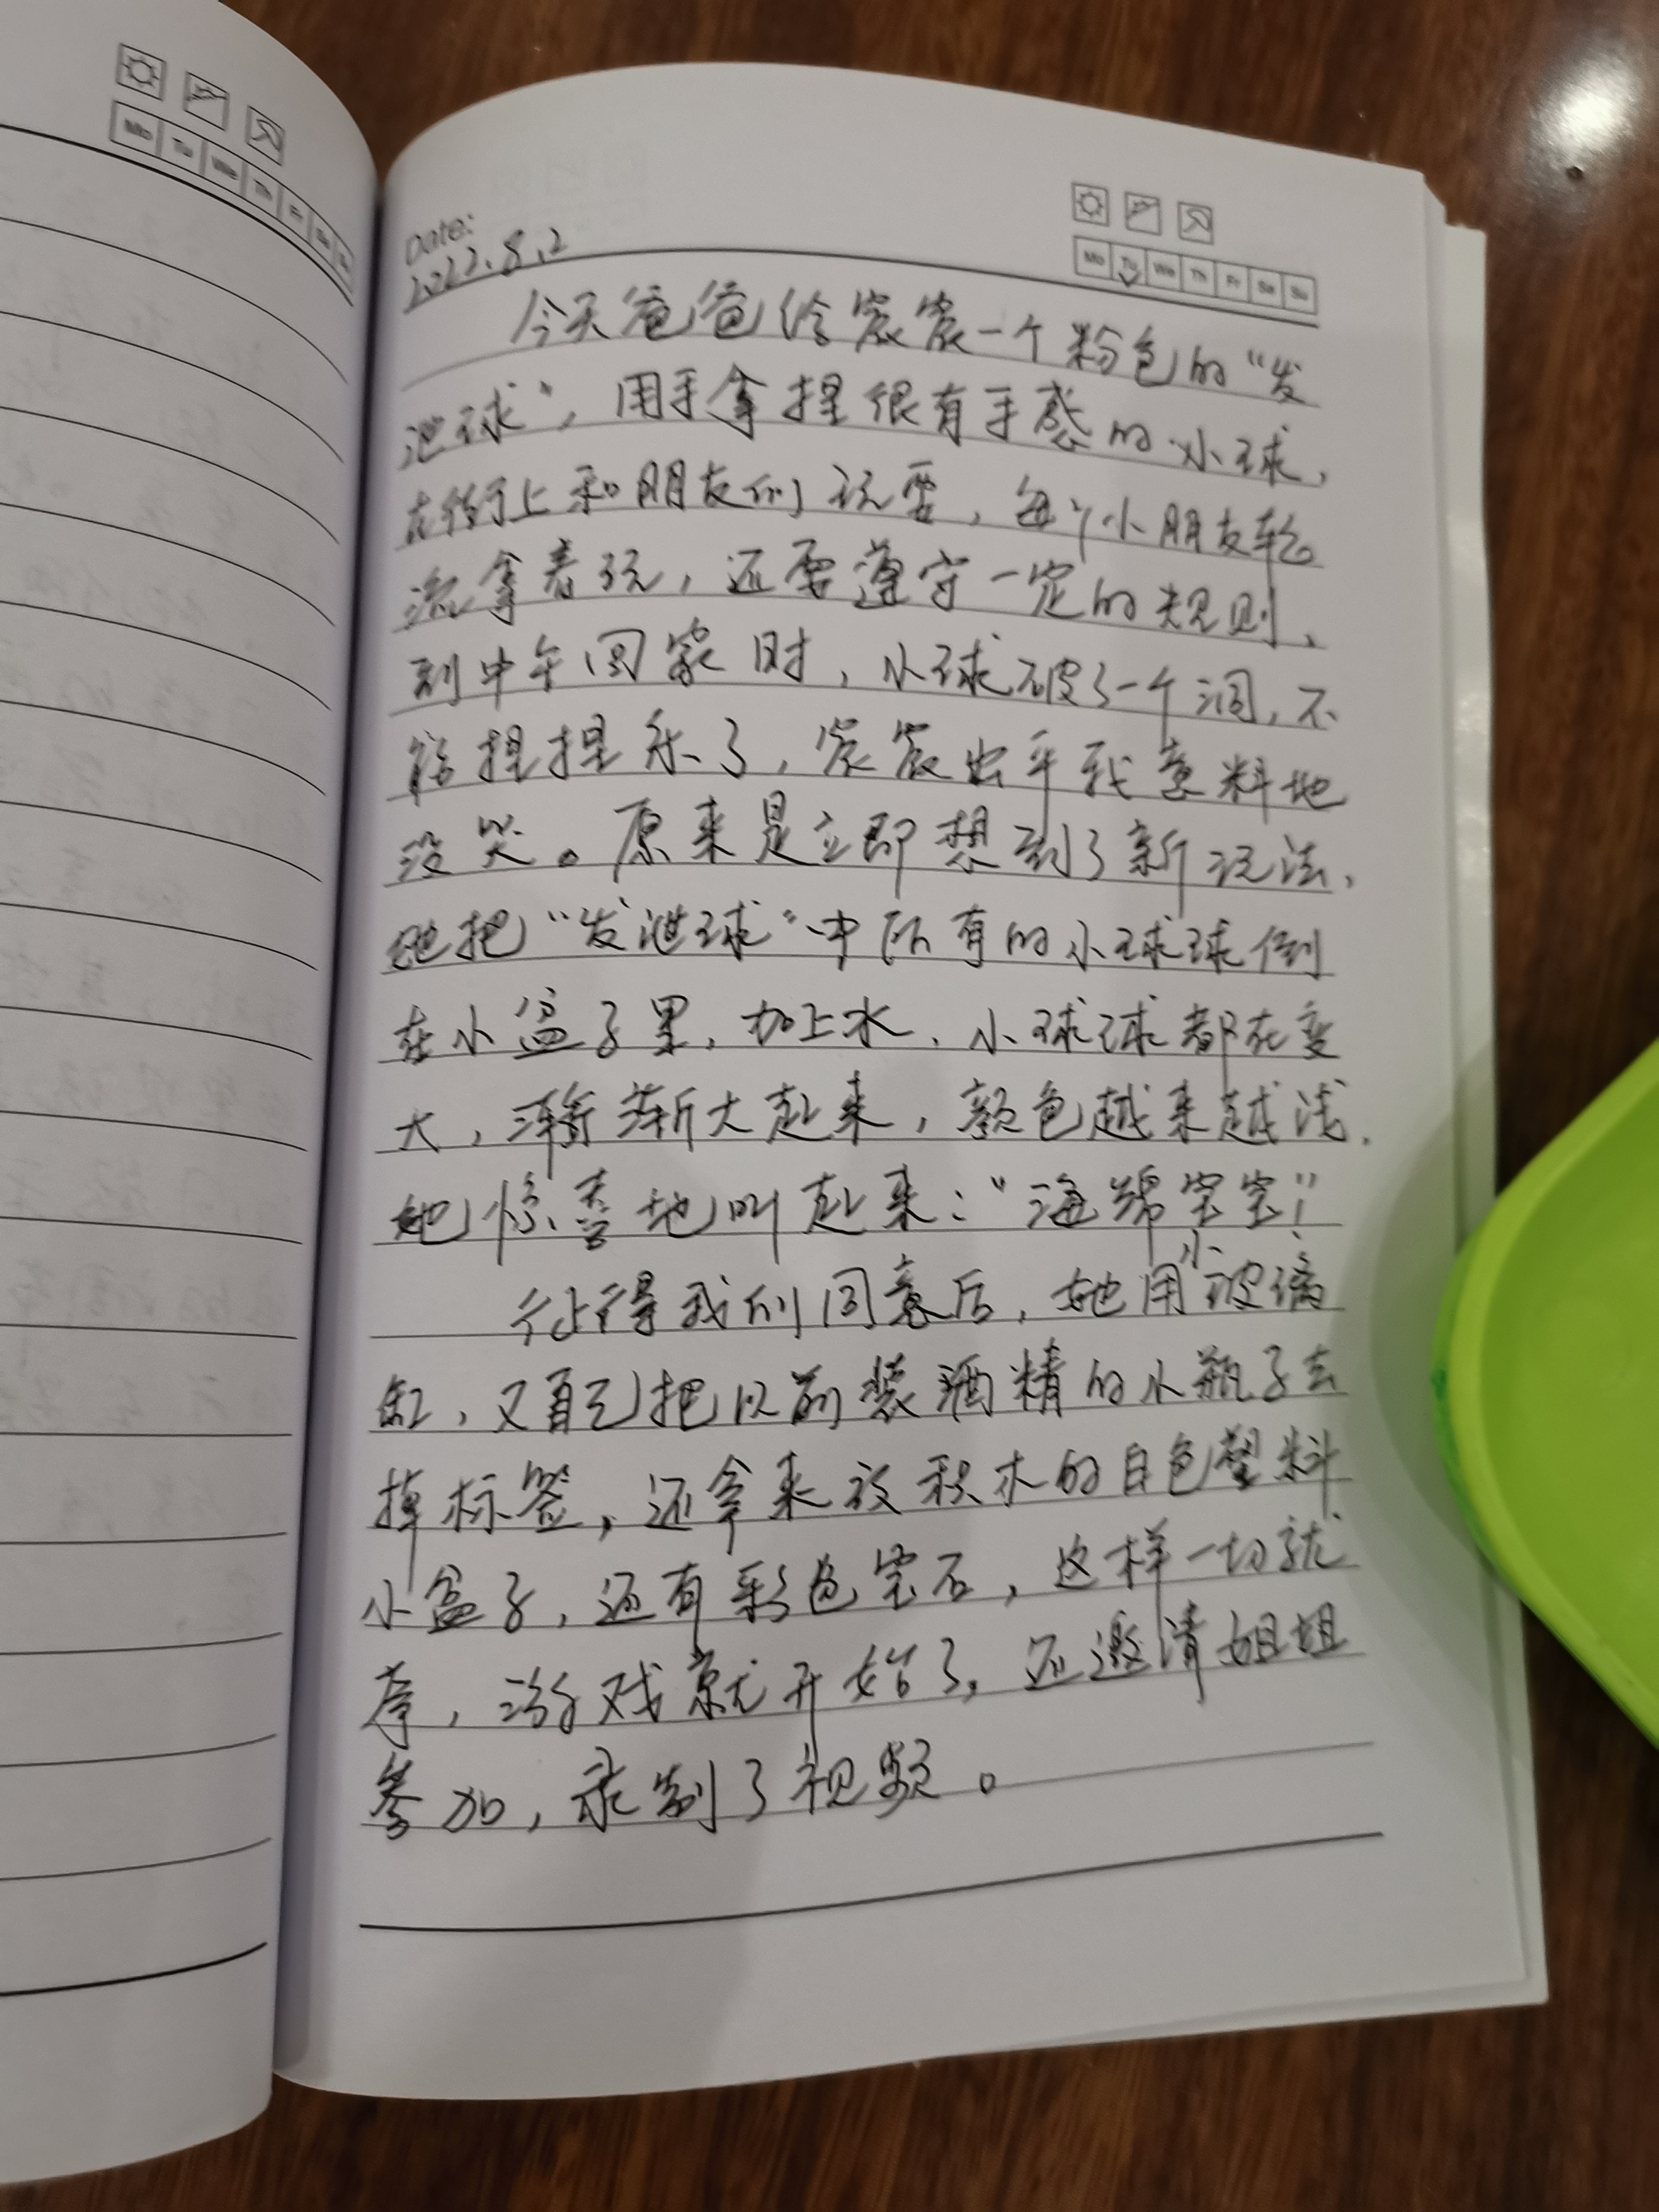 Mo Tu We Th Fr Sa Su
Date:
2022.8.2
Mo Tu We Th Fr Sa Su
今天爸爸给宸宸一个粉色的“发
泄球”，用手拿捏很有手感的小球，
在街上和朋友们玩耍，每个小朋友轮
流拿着玩，还要遵守一定的规则，
到中午回家时，小球破了一个洞，不
能捏捏乐了，宸宸出乎我意料地
没哭。原来是立即想到了新玩法，
她把“发泄球”中所有的小球球倒
在小盆子里，加上水，小球球都在变
大，渐渐大起来，颜色越来越浅，
她惊喜地叫起来：“海绵宝宝！”
征得我们同意后，她用小玻璃
缸，又自己把以前装酒精的小瓶子去
掉标签，还拿来放积木的白色塑料
小盆子，还有彩色宝石，这样一切就
序，游戏就开始了。还邀请姐姐
参加，录制了视频。